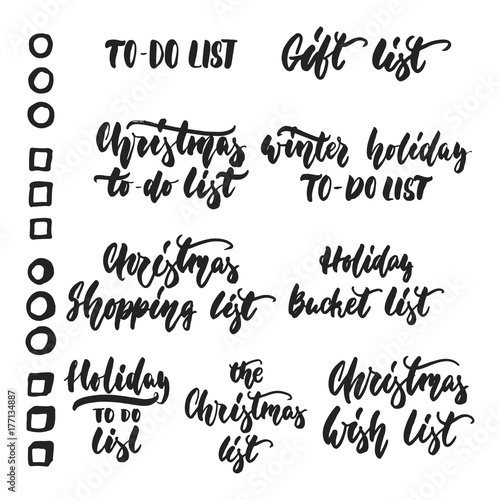 TO-DO LIST
Gift list
Christmas
to-do list
winter holiday
TO-DO LIST
Christmas
Shopping list
Holiday
Bucket list
Holiday
TO DO
list
the
Christmas
list
Christmas
Wish list
177134887